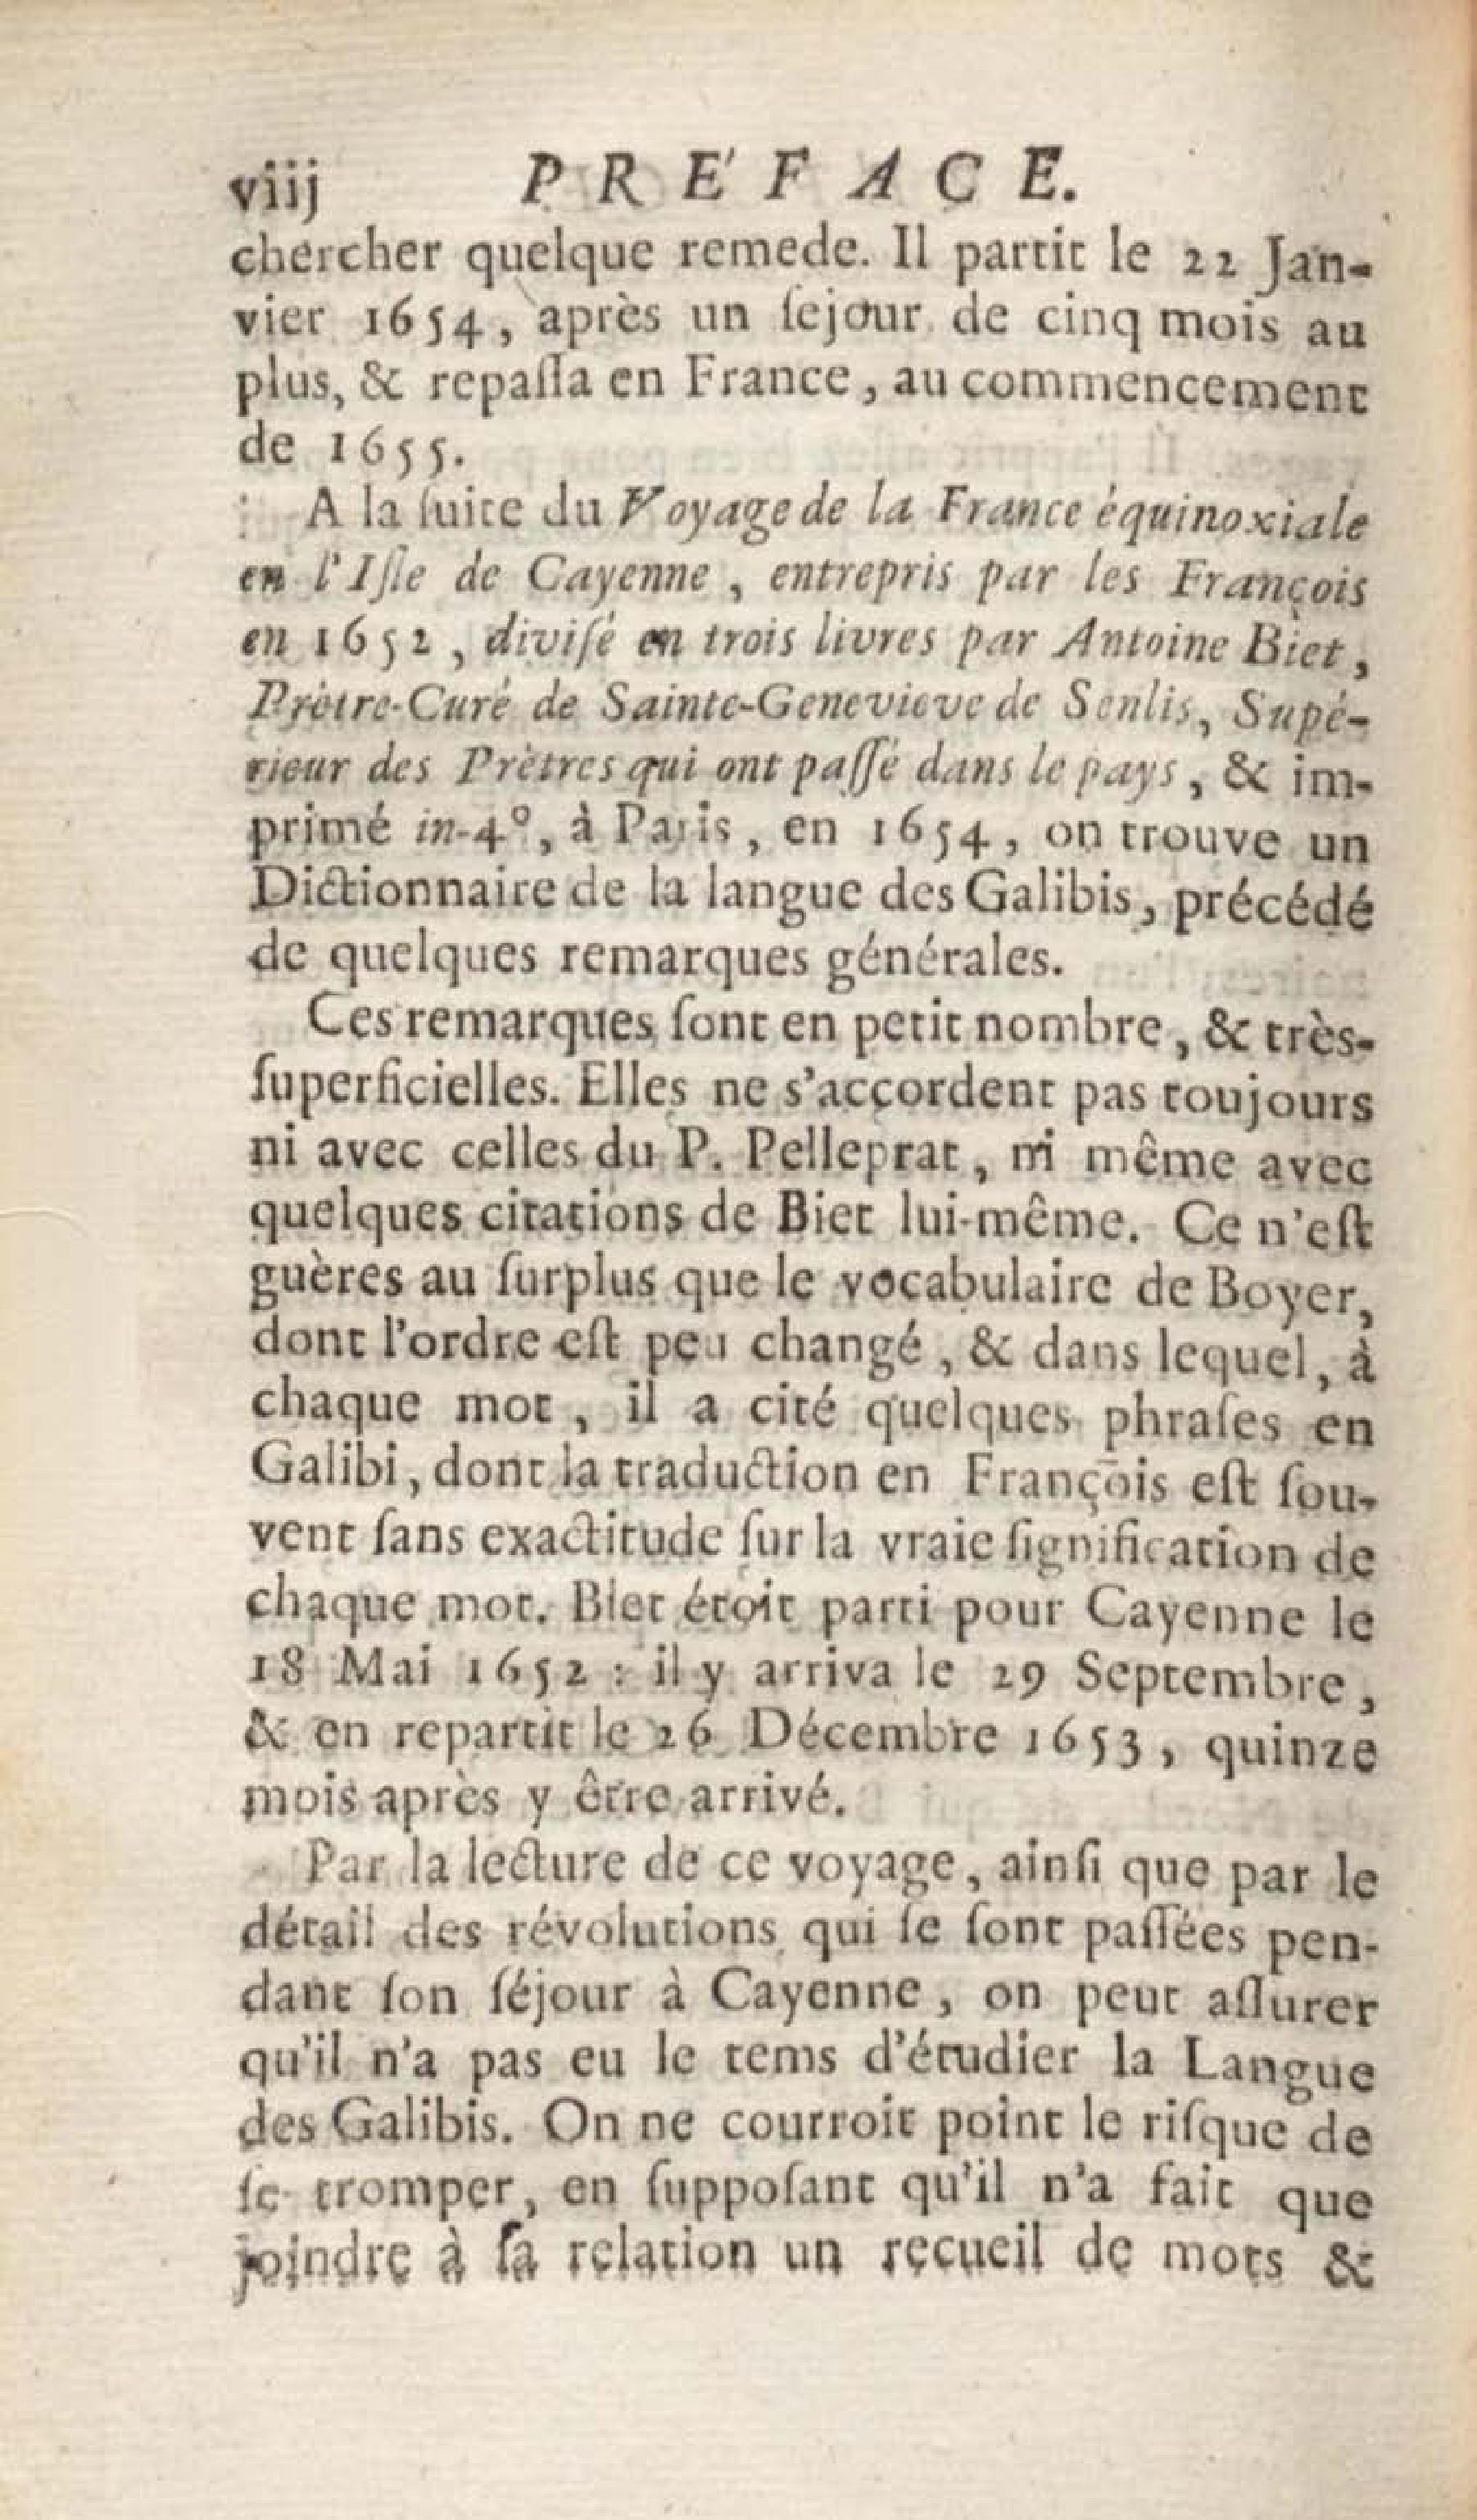 viij PRÉFACE.
chercher quelque remede. Il partit le 22 Jan-
vier 1654, après un ſejour de cinq mois au
plus, & repaſſa en France, au commencement
de 1655.
A la ſuite du Voyage de la France équinoxiale
en l'Iſle de Cayenne, entrepris par les François
en 1652, diviſé en trois livres par Antoine Biet,
Prètre-Curé de Sainte-Genevieve de Senlis, Supé-
rieur des Prètres qui ont paſſé dans le pays, & im-
primé in-4°, à Paris, en 1654, on trouve un
Dictionnaire de la langue des Galibis, précédé
de quelques remarques générales.
Ces remarques ſont en petit nombre, & très-
ſuperficielles. Elles ne s'accordent pas toujours
ni avec celles du P. Pelleprat, ni même avec
quelques citations de Biet lui-même. Ce n'eſt
guères au ſurplus que le vocabulaire de Boyer,
dont l'ordre eſt peu changé, & dans lequel, à
chaque mot, il a cité quelques phraſes en
Galibi, dont la traduction en François eſt ſou-
vent ſans exactitude ſur la vraie ſignification de
chaque mot. Biet étoit parti pour Cayenne le
18 Mai 1652 : il y arriva le 29 Septembre,
& en repartit le 26 Décembre 1653, quinze
mois après y être arrivé.
Par la lecture de ce voyage, ainſi que par le
détail des révolutions qui ſe ſont paſſées pen-
dant ſon ſéjour à Cayenne, on peut aſſurer
qu'il n'a pas eu le tems d'étudier la Langue
des Galibis. On ne courroit point le riſque de
ſe tromper, en ſuppoſant qu'il n'a fait que
joindre à ſa relation un recueil de mots &